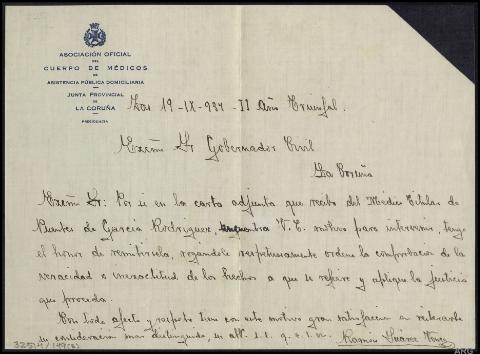 ASOCIACIÓN OFICIAL
DEL
CUERPO DE MÉDICOS
DE
ASISTENCIA PÚBLICA DOMICILIARIA
JUNTA PROVINCIAL
DE
LA CORUÑA
PRESIDENCIA
Zas 19-IX-937-II Año Triunfal.
Excmo Sr Gobernador Civil
La Coruña
Excmo Sr: Por si en la carta adjunta que recibo del Médico Titular de
Puentes de Garcia Rodriguez, encuentra V. E. motivo para intervenir, tengo
el honor de remitirsela, rogandole respetuosamente ordene la comprobacion de la
veracidad o inexactitud de los hechos a que se refiere y aplique la justicia
que proceda.
Con todo afecto y respeto tiene con este motivo gran satisfaccion en reiterarle
su consideracion mas distinguida, su afft. s. s. q. e. s. m. Ramon Suárez
32514/149(8)
ARG